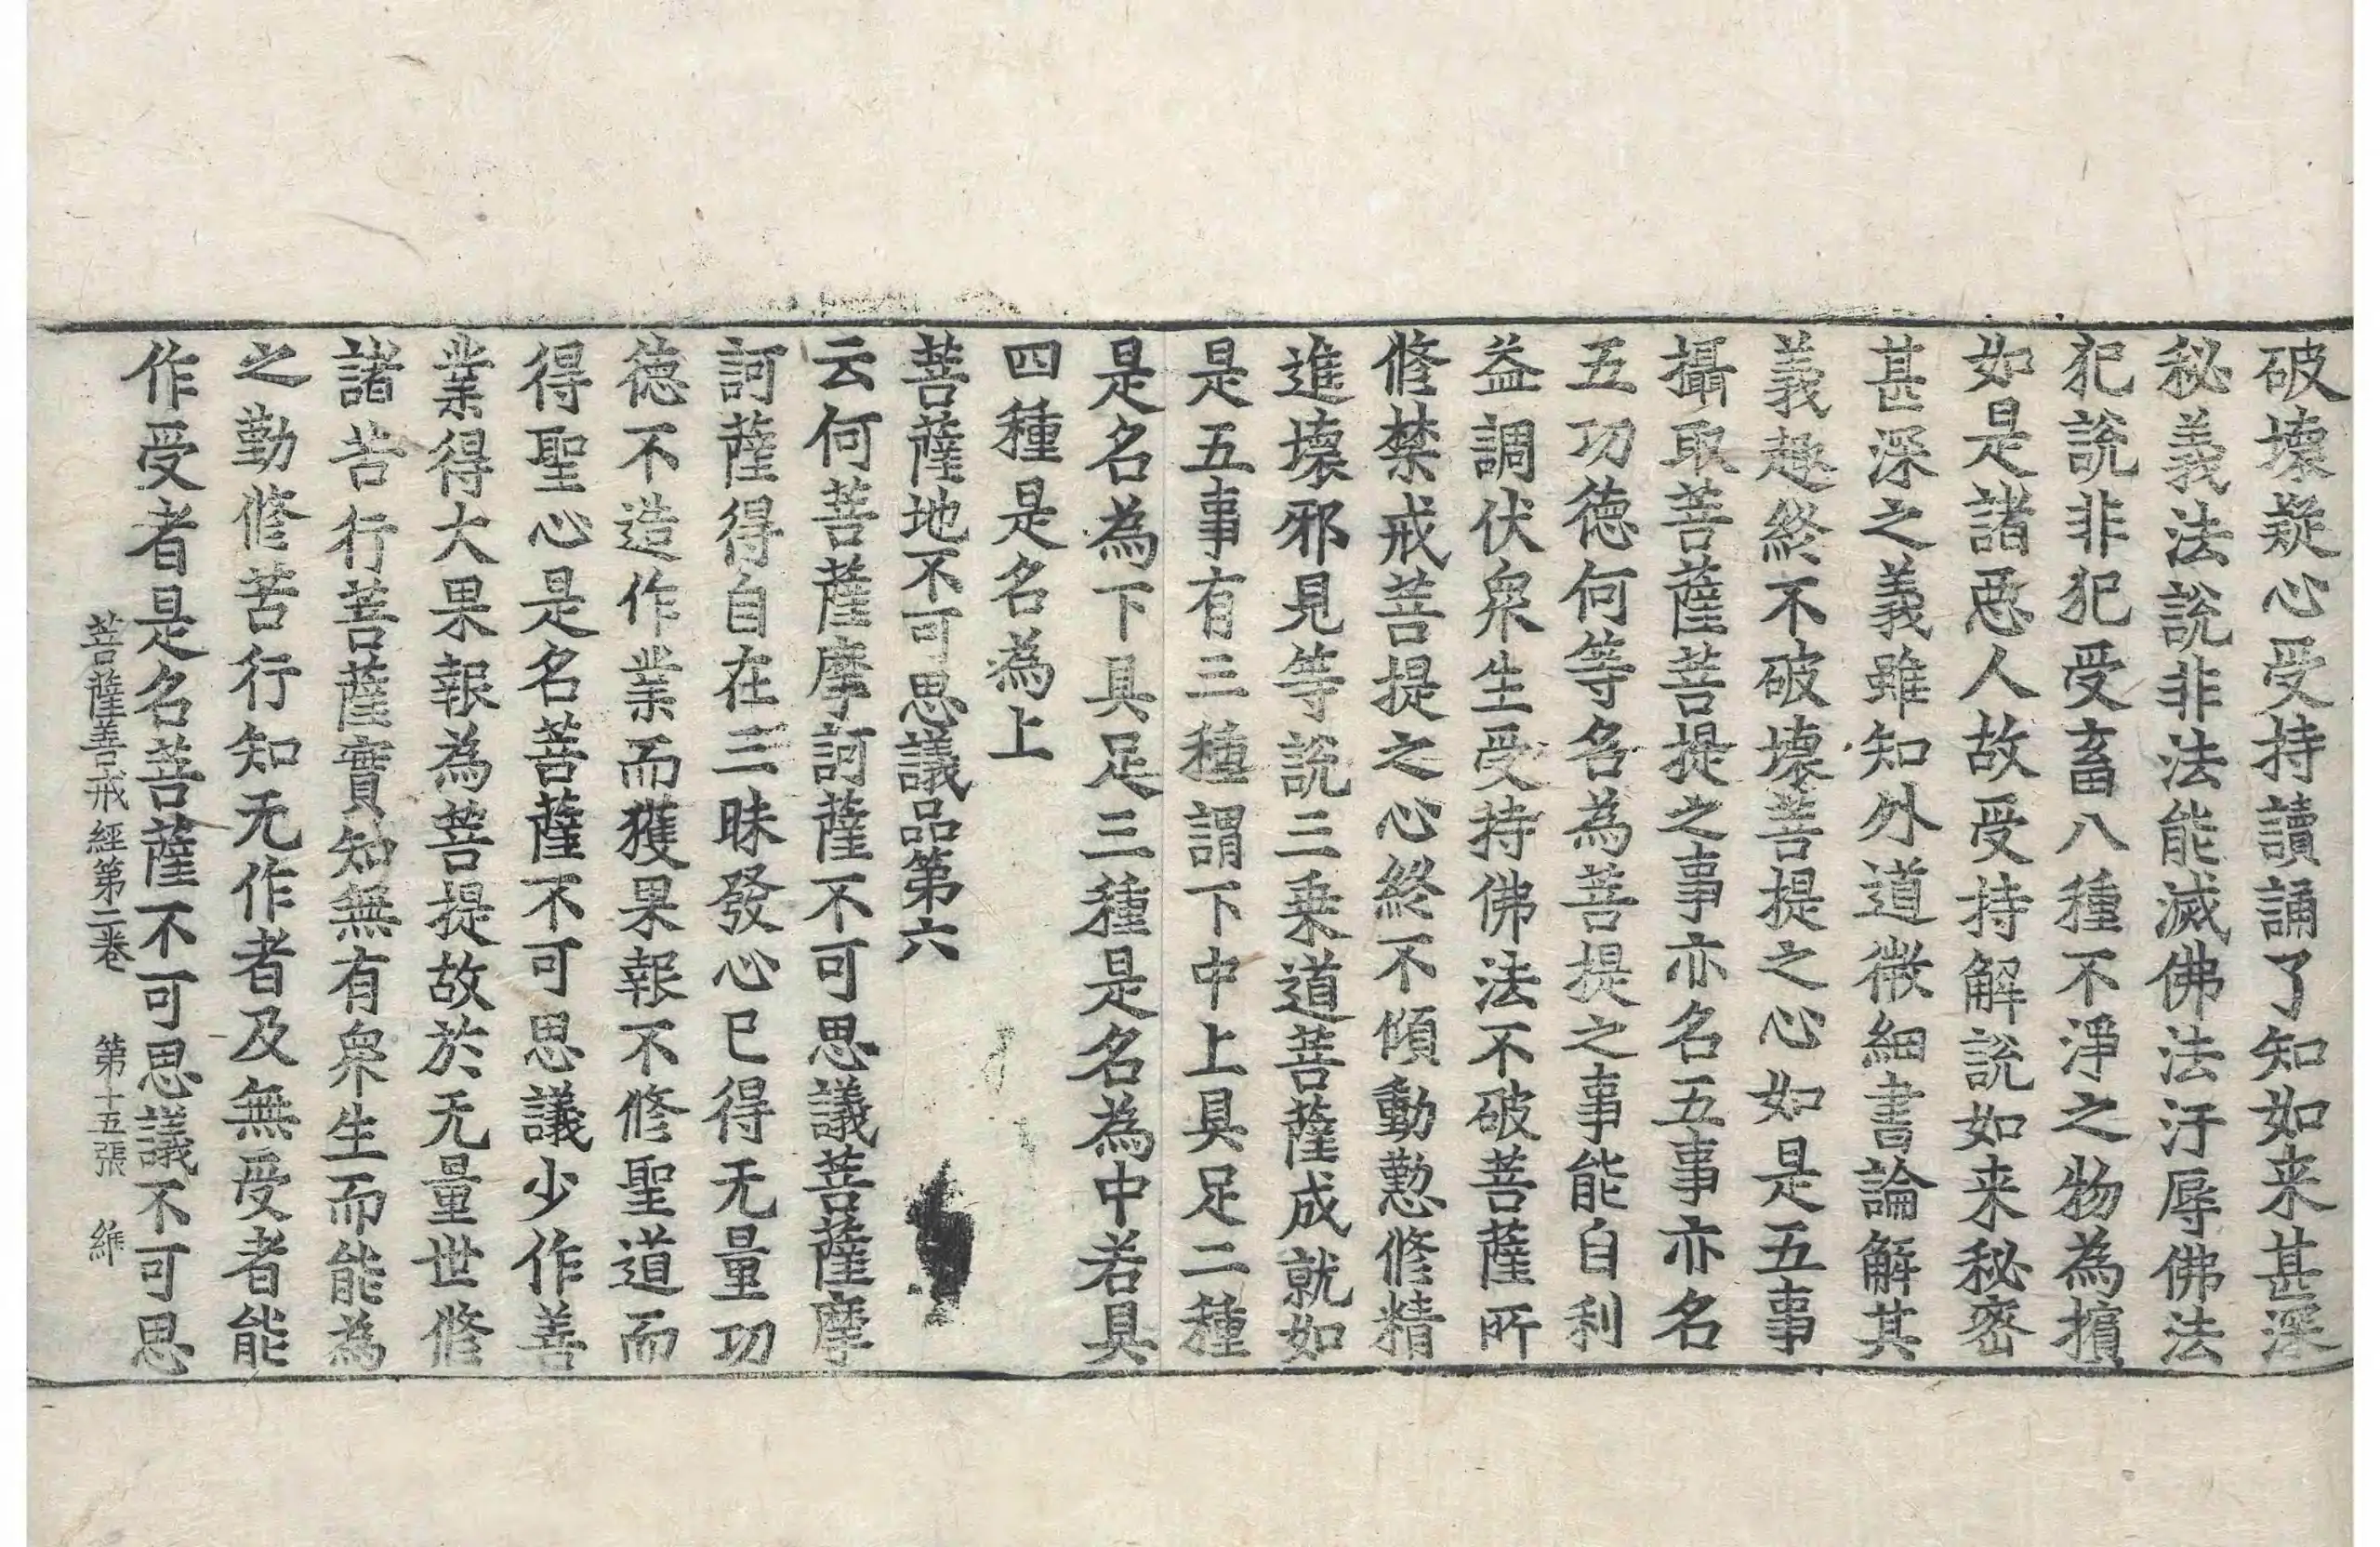 破壞疑心受持讀誦了知如来甚深
秘義法說非法能滅佛法汙辱佛法
犯說非犯受畜八種不淨之物為擯
如是諸惡人故受持解說如来秘密
甚深之義雖知外道微細書論解其
義趣終不破壞菩提之心如是五事
攝取菩薩菩提之事亦名五事亦名
五功德何等名為菩提之事能自利
益調伏衆生受持佛法不破菩薩所
修禁戒菩提之心終不傾動懃修精
進壞邪見等說三乗道菩薩成就如
是五事有三種謂下中上具足二種
是名為下具足三種是名為中若具
四種是名為上
菩薩地不可思議品第六
云何菩薩摩訶薩不可思議菩薩摩
訶薩得自在三昧發心已得无量功
德不造作業而獲果報不修聖道而
得聖心是名菩薩不可思議少作善
業得大果報為菩提故於无量世修
諸苦行菩薩實知無有衆生而能為
之勤修苦行知无作者及無受者能
作受者是名菩薩不可思議不可思
菩薩善戒經第二卷 第十五張 維